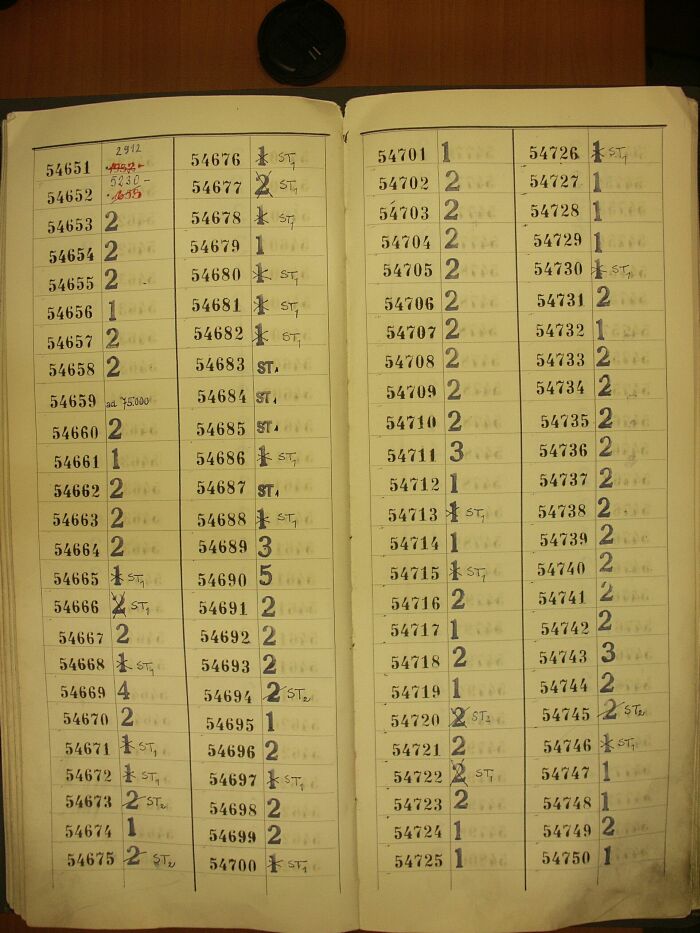 2912
54651
5230 -
54652
54653 2
54654 2
54655 2
54656 1
54657 2
54658 2
54659 ad 75.000
54660 2
54661 1
54662 2
54663 2
54664 2
54665 1 ST1
54666 2 ST1
54667 2
54668 1 ST1
54669 4
54670 2
54671 1 ST1
54672 1 ST1
54673 2 ST2
54674 1
54675 2 ST2
54676 1 ST1
54677 2 ST1
54678 1 ST1
54679 1
54680 1 ST1
54681 1 ST1
54682 1 ST1
54683 ST1
54684 ST1
54685 ST1
54686 1 ST1
54687 ST1
54688 1 ST1
54689 3
54690 5
54691 2
54692 2
54693 2
54694 2 ST2
54695 1
54696 2
54697 1 ST1
54698 2
54699 2
54700 1 ST1
54701 1
54702 2
54703 2
54704 2
54705 2
54706 2
54707 2
54708 2
54709 2
54710 2
54711 3
54712 1
54713 1 ST1
54714 1
54715 1 ST1
54716 2
54717 1
54718 2
54719 1
54720 2 ST1
54721 2
54722 2 ST1
54723 2
54724 1
54725 1
54726 1 ST1
54727 1
54728 1
54729 1
54730 1 ST1
54731 2
54732 1
54733 2
54734 2
54735 2
54736 2
54737 2
54738 2
54739 2
54740 2
54741 2
54742 2
54743 3
54744 2
54745 2 ST2
54746 1 ST1
54747 1
54748 1
54749 2
54750 1